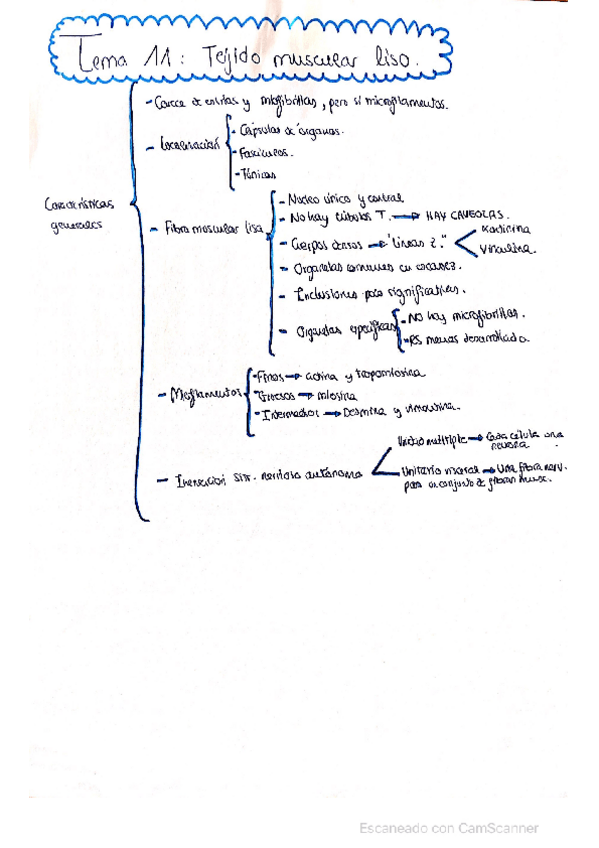 Tema 11: Tejido muscular liso.
Características generales
- Carece de estrías y miofibrillas, pero sí microfilamentos.
- Localización
- Cápsulas de órganos.
- Fascículos.
- Túnicas
- Fibra muscular lisa
- Núcleo único y central
- No hay túbulos T. → HAY CAVEOLAS.
- Cuerpos densos → "líneas Z."
Vinculina.
- Organelas comunes en escasez.
- Inclusiones poco significativas.
- Organelas específicas
- NO hay microfibrillas.
- RS menos desarrollado.
- Miofilamentos
- Finos → actina y tropomiosina
- Gruesos → miosina
- Intermedios → Desmina y vimentina.
- Inervación sist. nervioso autónomo
Unidad múltiple → Cada célula una neurona
Unitario visceral → Una fibra nerv.
para un conjunto de fibras musc.
Escaneado con CamScanner